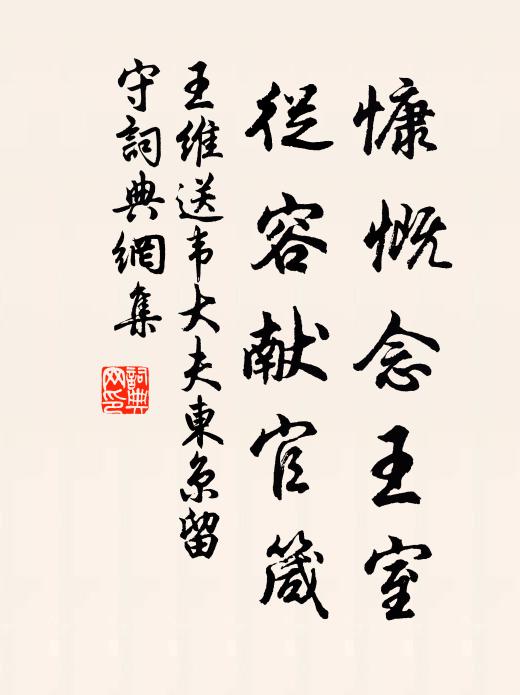 慷慨念王室
從容献官箴
王維送韦大夫東京留
守詞典網集
詞典网印